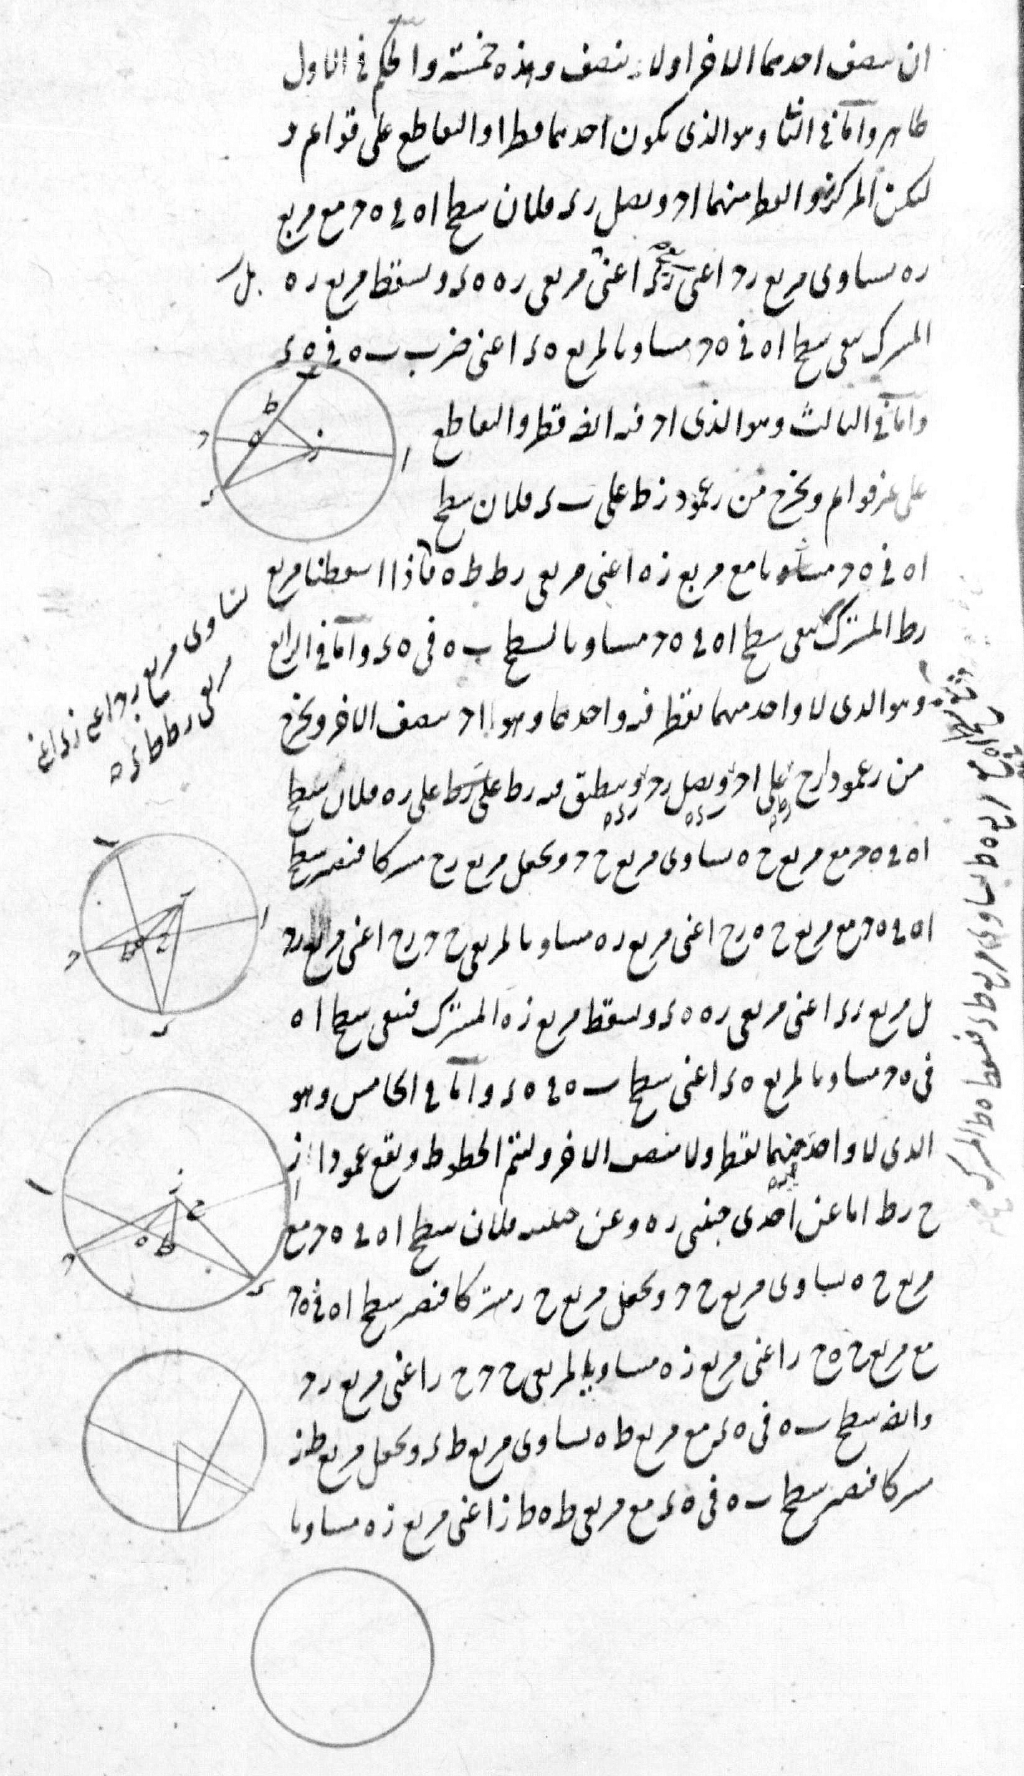 ان ينصف احدهما الآخر او لا ينصف وهذه خمسة والحكم فى الاول
ظاهر واما فى الثانى وهو الذى يكون احدهما قطرا والتقاطع على قوائم و
ليكن المركز ر والقطر منهما ا ح ونصل ر د فلان سطح ا ه فى ه ح مع مربع
ر ه يساوى مربع ر ح اعنى ر د اعنى مربعى ر ه ه د ونسقط مربع ر ه
المشترك يبقى سطح ا ه فى ه ح مساويا لمربع ه د اعنى ضرب ب ه فى ه د
واما فى الثالث وهو الذى ا ح فيه ايضا قطر والتقاطع
على غير قوائم ونخرج من ر عمود ز ط على ب د فلان سطح
ا ه فى ه ح مع مربع ز ه اعنى مربعى ر ط ط ه فاذا اسقطنا مربع
يساوى مربع ر ح اعنى ز د اعنى
مربعى ر ط ط د
ر ط المشترك يبقى سطح ا ه فى ه ح مساويا لسطح ب ه فى ه د واما فى الرابع
وهو الذى لا واحد منهما بقطر فيه واحدهما وهو ا ح ينصف الآخر ونخرج
من ر عمود ر ح على ا ح ونصل ر ح وينطبق فيه ر ط على ر ه فلان سطح
ا ه فى ه ح مع مربع ح ه يساوى مربع ح ح ونجعل مربع ر ح مشتركا فيصير سطح
ا ه فى ه ح مع مربع ح ه ر ح اعنى مربع ر ه مساويا لمربعى ح ح ر ح اعنى مربع ر ح
بل مربع ر د اعنى مربعى ر ه ه د ونسقط مربع ز ه المشترك فيبقى سطح ا ه
فى ه ح مساويا لمربع ه د اعنى سطح ب ه فى ه د واما فى الخامس وهو
الذى لا واحد منهما بقطر ولا منصف الآخر ولنتم الخطوط ويقع عمودا ز
ح ر ط اما عن احدى جنبتى ر ه وعن جنبتيه فلان سطح ا ه فى ه ح مع
مربع ح ه يساوى مربع ح ح ونجعل مربع ح ر مشتركا فيصير سطح ا ه فى ه ح
مع مربع ح ه ح ر اعنى مربع ز ه مساويا لمربعى ح ح ح ر اعنى مربع ر ح
وايضا سطح ب ه فى ه د مع مربع ط ه يساوى مربع ط د ونجعل مربع ط ز
مشتركا فيصير سطح ب ه فى ه د مع مربعى ط ه ط ز اعنى مربع ز ه مساويا